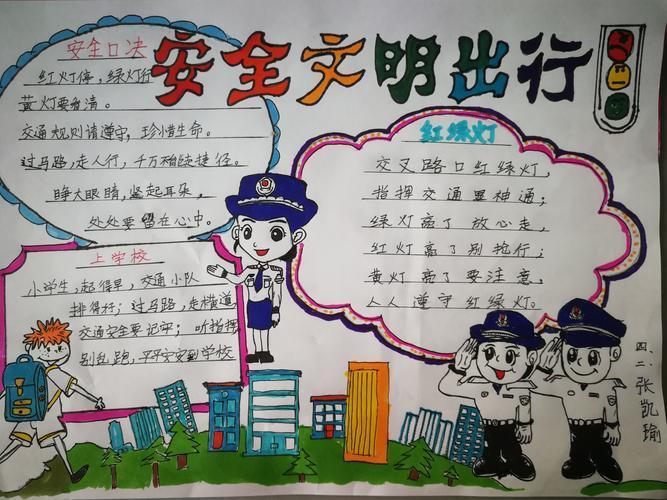 安全文明出行
安全口决
红灯停，绿灯行
黄灯要看清。
交通规则请遵守，珍惜生命。
过马路，走人行，千万稍走捷径。
睁大眼睛，竖起耳朵，
处处要留在心中。
上学校
小学生，起得早，交通小队
排得好；过马路，走横道
交通安全要记牢；听指挥
别乱跑，平平安安到学校
红绿灯
交叉路口红绿灯，
指挥交通显神通；
绿灯亮了放心走，
红灯亮了别抢行；
黄灯亮了要注意，
人人遵守红绿灯。
四、二、张凯瑜